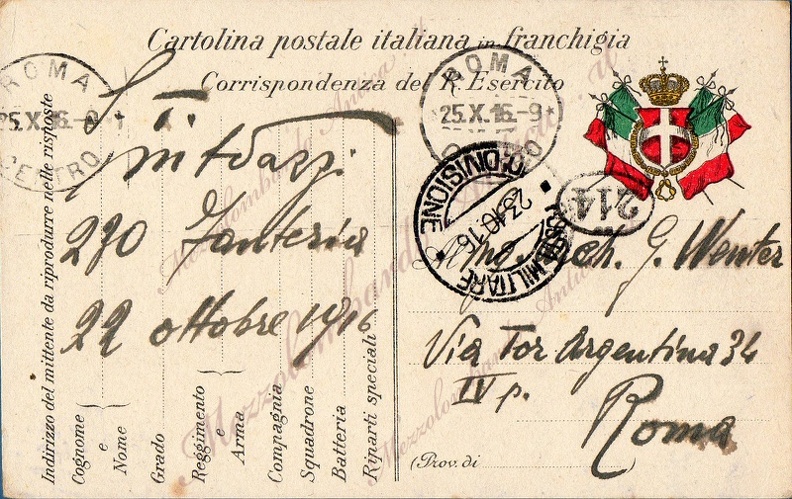 Cartolina postale italiana in franchigia
Corrispondenza del R. Esercito
Indirizzo del mittente da riprodurre nelle risposte
Cognome
e
Nome
Grado
Reggimento
e
Arma
Compagnia
Squadrone
Batteria
Riparti speciali
S. T.
270 Fanteria
22 ottobre 1916
ROMA
25.X.16.-9
CENTRO
ROMA
25.X.16.-9
POSTA MILITARE
DIVISIONE
23.10.16
214
G. Wenter
Via Tor Argentina 34
IV p.
Roma
(Prov. di
Mezzolombardo Antica